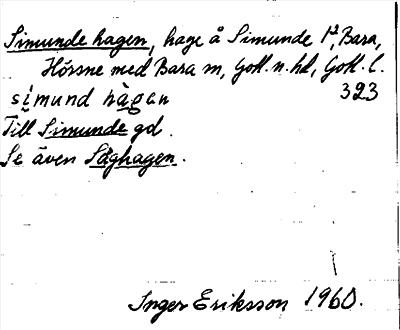 Simunde hagen, hage å Simunde 1², Bara,
Hörsne med Bara sn, Gotl. n. hd, Gotl. l.
simund hàgan 323
Till Simunde gd.
Se även Såghagen.
Inger Eriksson 1960.